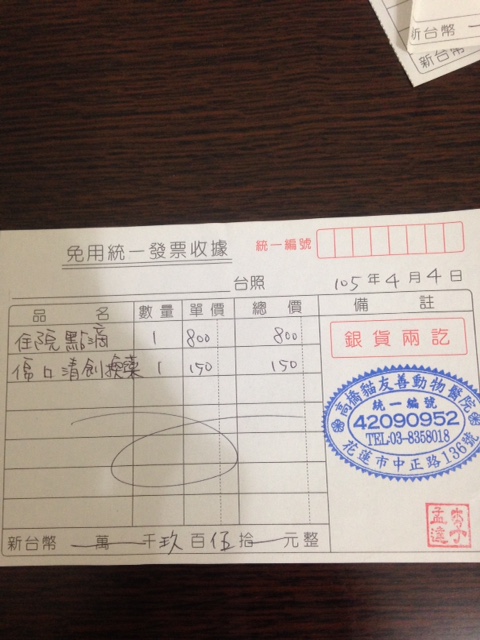 新台幣
新台幣
免用統一發票收據 統一編號
台照 105年4月4日
品名 數量 單價 總價 備註
住院點滴 1 800 800
傷口清創換藥 1 150 150
銀貨兩訖
高橋貓友善動物醫院
統一編號
42090952
TEL:03-8358018
花蓮市中正路136號
新台幣 一萬 千玖百伍拾 元整